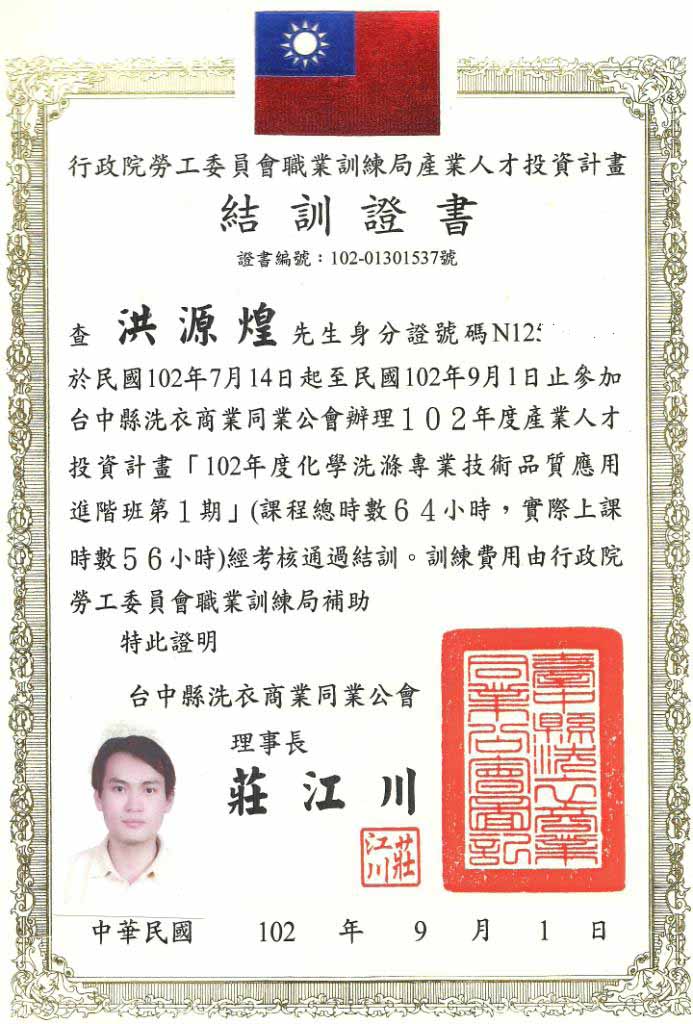 行政院勞工委員會職業訓練局產業人才投資計畫
結訓證書
證書編號：102-01301537號
查 洪源煌 先生身分證號碼N125
於民國102年7月14日起至民國102年9月1日止參加
台中縣洗衣商業同業公會辦理１０２年度產業人才
投資計畫「102年度化學洗滌專業技術品質應用
進階班第１期」(課程總時數６４小時，實際上課
時數５６小時)經考核通過結訓。訓練費用由行政院
勞工委員會職業訓練局補助
特此證明
台中縣洗衣商業同業公會
理事長
莊江川
莊江川
臺中縣洗衣商業同業公會圖記
中華民國 102 年 9 月 1 日